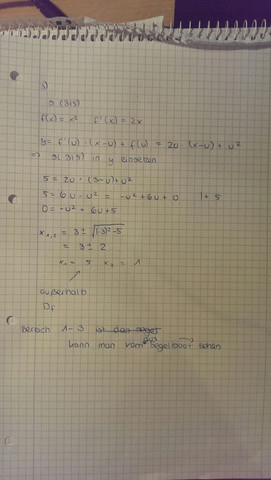 3)
S (3|5)
f(x) = x² f'(x) = 2x
y = f'(u) · (x-u) + f(u) = 2u (x-u) + u²
=> S(3|5) in y einsetzen
5 = 2u · (3-u) + u²
5 = 6u - u² = -u² + 6u + 0 | + 5
0 = -u² + 6u + 5
x₁,₂ = 3 ± √(-3)² - 5
= 3 ± 2
x₁ = 5 x₂ = 1
außerhalb
Df
Bereich 1-3 ist das Segel
kann man vom aus Segelboot sehen